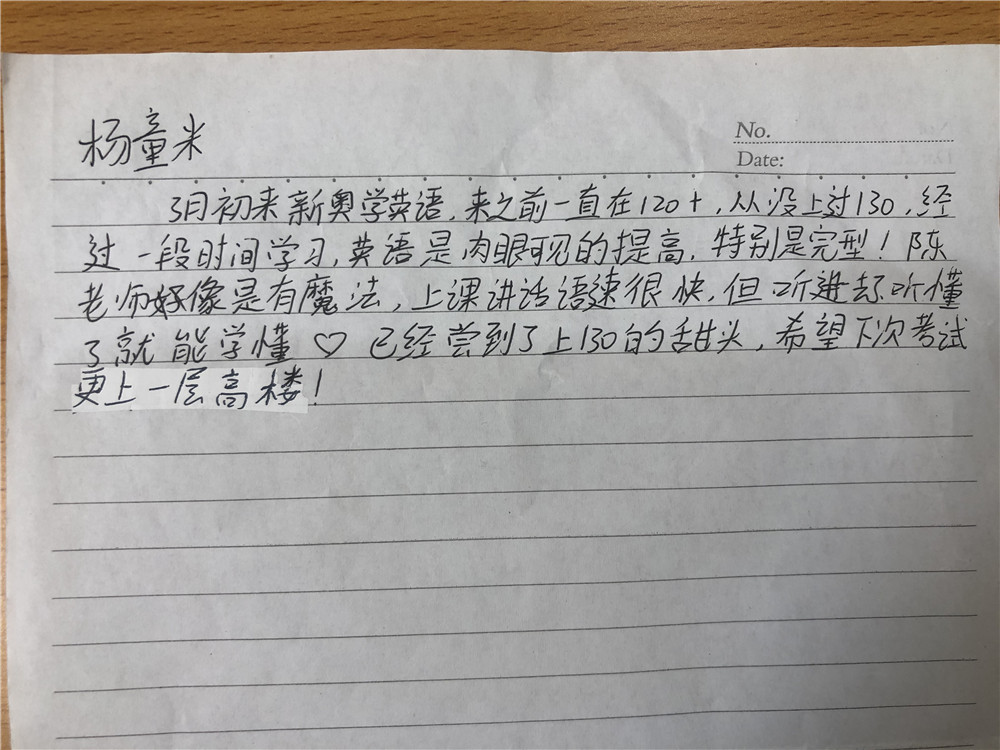 杨童米
No.
Date:
3月初来新奥学英语,来之前一直在120+,从没上过130,经
过一段时间学习,英语是肉眼可见的提高,特别是完型!陈
老师好像是有魔法,上课讲话语速很快,但听进去听懂
了就能学懂♡已经尝到了上130的甜头,希望下次考试
更上一层高楼!